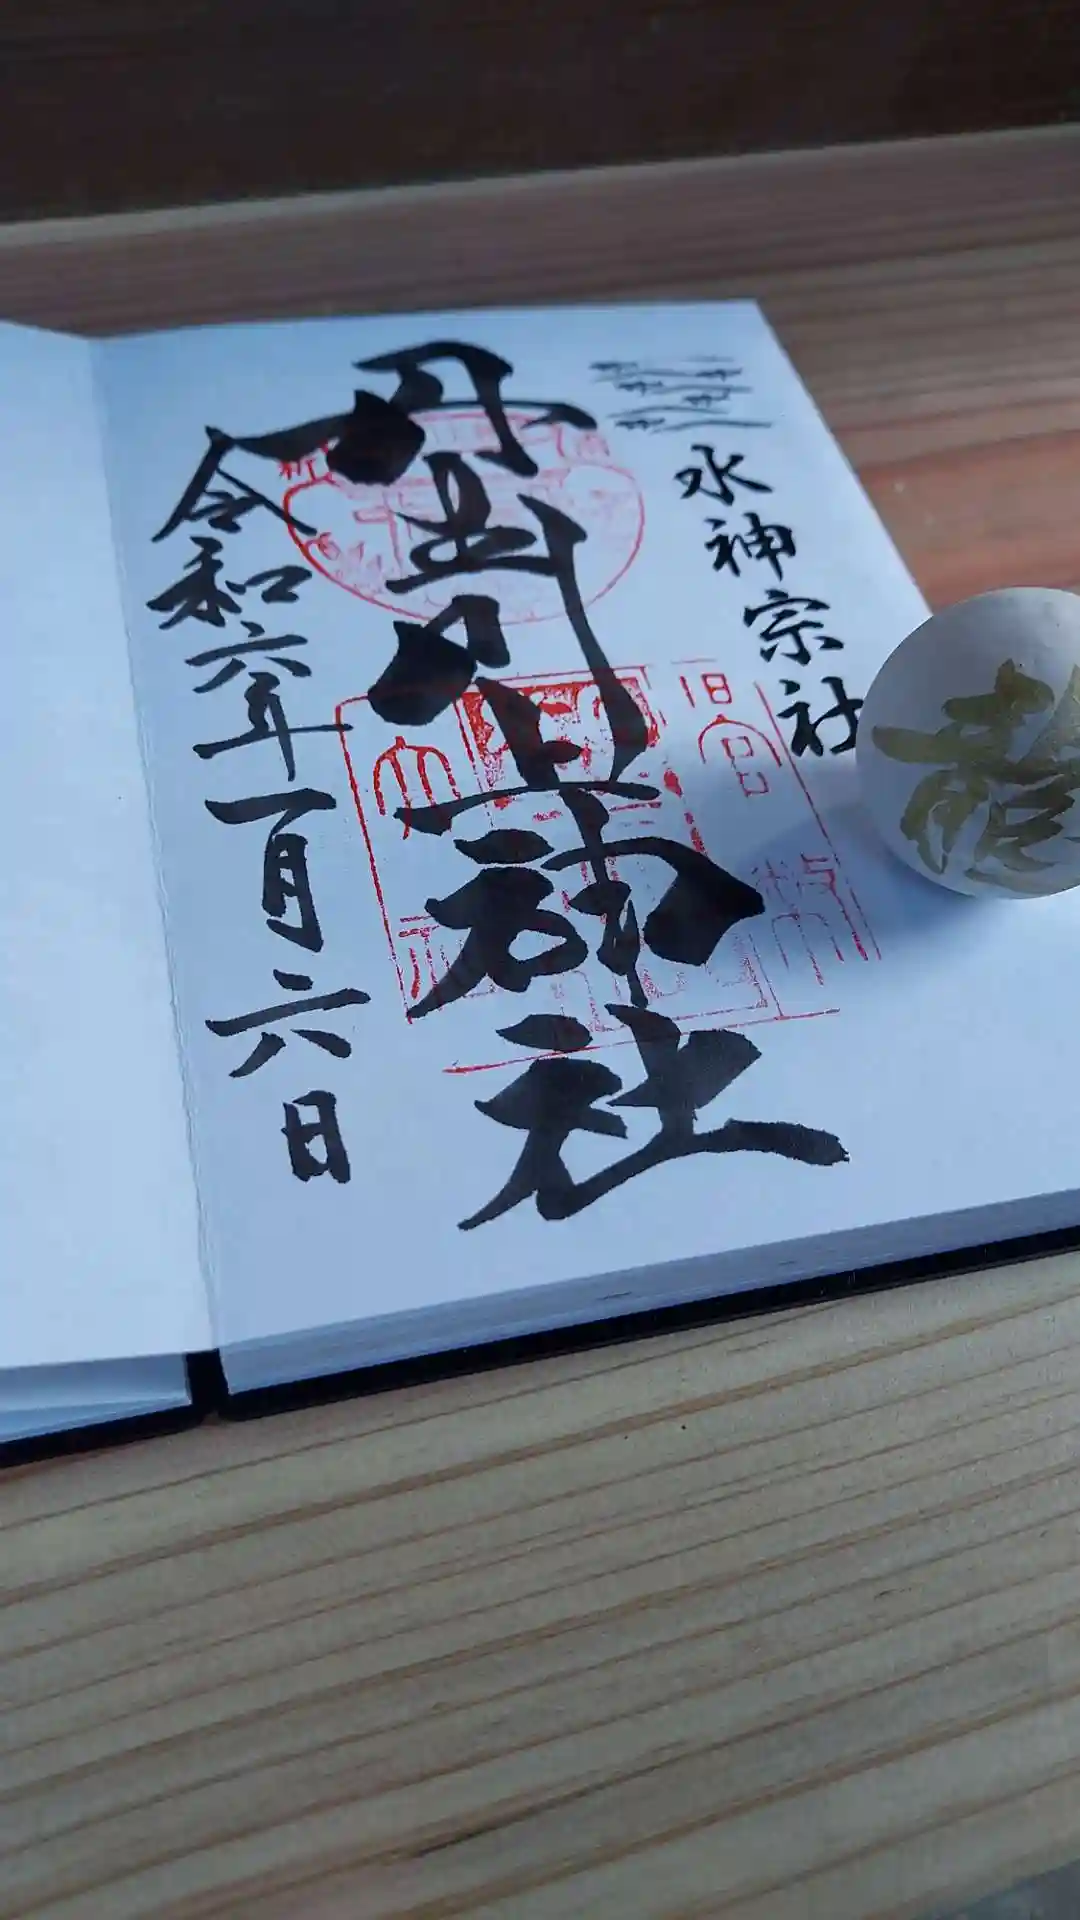 水神宗社
丹生川上神社
旧官幣
大社
令和六年一月六日